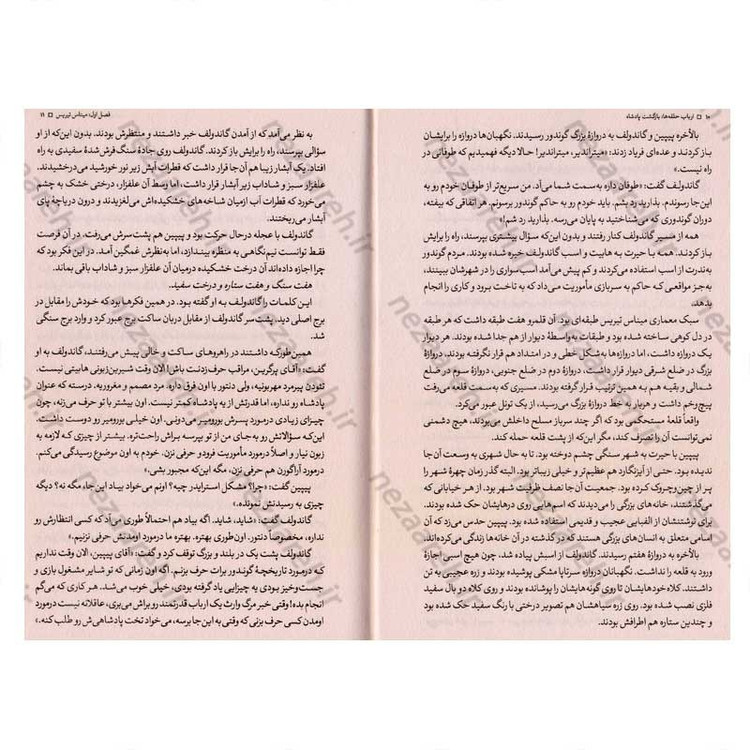 ۱۰ □ ارباب حلقه‌ها: بازگشت پادشاه
بالأخره پیپین و گاندولف به دروازهٔ بزرگ گوندور رسیدند. نگهبان‌ها دروازه را برایشان
باز کردند و عده‌ای فریاد زدند: «میتراندیر، میتراندیر! حالا دیگه فهمیدیم که طوفانی در
راه نیست.»
گاندولف گفت: «طوفان داره به سمت شما می‌آد. من سریع‌تر از طوفان خودم رو به
این‌جا رسوندم. بذارید رد بشم. باید خودم رو به حاکم گوندور برسونم. هر اتفاقی که بیفته،
دوران گوندوری که می‌شناختید به پایان می‌رسه. بذارید رد شم!»
همه از مسیر گاندولف کنار رفتند و بدون این‌که سؤال بیشتری بپرسند، راه را برایش
باز کردند. همه با حیرت به هابیت و اسب گاندولف خیره شده بودند. مردم گوندور
به‌ندرت از اسب استفاده می‌کردند و کم پیش می‌آمد اسب‌سواری را در شهرشان ببینند،
به‌جز مواقعی که حاکم به سربازی مأموریت می‌داد که به تاخت برود و کاری را انجام
بدهد.
سبک معماری میناس تیریس طبقه‌ای بود. آن قلمرو هفت طبقه داشت که هر طبقه
در دل کوهی ساخته شده بود و طبقات به‌واسطهٔ دیوار از هم جدا شده بودند. هر دیوار
یک دروازه داشت، اما دروازه‌ها به‌شکل خطی و در امتداد هم قرار نگرفته بودند. دروازهٔ
بزرگ در ضلع شرقی دیوار جا داشت، دروازهٔ دوم در ضلع جنوبی، دروازهٔ سوم در ضلع
شمالی و بقیه هم به همین ترتیب قرار گرفته بودند. مسیری که به سمت قلعه می‌رفت
پیچ‌وخم داشت و هربار به خط دروازهٔ بزرگ می‌رسید، از یک تونل عبور می‌کرد.
واقعاً قلعهٔ مستحکمی بود که اگر چند سرباز مسلح داخلش می‌بودند، هیچ دشمنی
نمی‌توانست آن را تصرف کند، مگر این‌که از پشت قلعه حمله کند.
پیپین با حیرت به شهر سنگی چشم دوخته بود. تا به حال شهری به وسعت آن‌جا
ندیده بود. حتی از آیزنگارد هم عظیم‌تر و خیلی زیباتر بود. البته گذر زمان چهرهٔ شهر را
پر از چین‌وچروک کرده بود. جمعیت آن‌جا نصف ظرفیت شهر بود. از هر خیابانی که
می‌گذشتند، خانه‌های بزرگی را می‌دیدند که اسم‌هایی روی درهایشان حک شده بودند.
برای نوشتنشان از الفبایی عجیب و قدیمی استفاده شده بود. پیپین حدس می‌زد که آن
اسامی متعلق به انسان‌های بزرگی هستند که در گذشته در آن خانه‌ها زندگی می‌کرده‌اند.
بالأخره به دروازهٔ هفتم رسیدند. گاندولف از اسبش پیاده شد، چون هیچ اسبی اجازهٔ
ورود به قلعه را نداشت. نگهبانان دروازه سرتاپا مشکی پوشیده بودند و زره عجیبی به تن
داشتند. کلاه‌خودهایشان تا روی گونه‌هایشان را پوشانده بودند و روی کلاه دو بال سفید
فلزی نصب شده بود. روی زره سیاهشان هم تصویر درختی با رنگ سفید حک شده بود
و چندین ستاره هم اطرافش بودند.
فصل اول: میناس تیریس □ ۱۱
به نظر می‌آمد که از آمدن گاندولف خبر داشتند و منتظرش بودند. بدون این‌که از او
سؤالی بپرسند، راه را برایش باز کردند. گاندولف روی جادهٔ سنگ‌فرش‌شدهٔ سفیدی به راه
افتاد. یک آبنمای زیبا هم آن‌جا قرار داشت که قطرات آبش زیر نور خورشید می‌درخشیدند.
علفزار سبز و شاداب زیر آبشار قرار داشت، اما وسط آن علفزار، درختی خشک به چشم
می‌خورد که قطرات آب از میان شاخه‌های خشکیده‌اش می‌لغزیدند و درون دریاچهٔ پای
آبشار می‌ریختند.
گاندولف با عجله در حال حرکت بود و پیپین هم پشت سرش می‌رفت. در آن فرصت
فقط توانست نیم‌نگاهی به منظره بیندازد، اما به‌نظرش غمگین آمد. در این فکر بود که
چرا اجازه داده‌اند آن درخت خشکیده در میان آن علفزار سبز و شاداب باقی بماند.
هفت سنگ و هفت ستاره و درخت سفید.
این کلمات را گاندولف به او گفته بود. در همین فکرها بود که خودش را مقابل در
برج اصلی دید. پشت سر گاندولف از مقابل دربان ساکت برج عبور کرد و وارد برج سنگی
شد.
همین‌طورکه داشتند در راهروهای ساکت و خالی پیش می‌رفتند، گاندولف به او
گفت: «آقای پرگرین، مراقب حرف‌زدنت باش! الان وقت شیرین‌زبونی هابیتی نیست.
تئودن پیرمرد مهربونیه، ولی دنتور با اون فرق داره. مرد مصمم و مغروریه. درسته که عنوان
پادشاه رو نداره، اما قدرتش از یه پادشاه کمتر نیست. اون بیشتر با تو حرف می‌زنه، چون
چیزای زیادی درمورد پسرش بورومیر می‌دونی. اون خیلی بورومیر رو دوست داشت.
این‌که سؤالاتش رو به جای من از تو بپرسه براش راحت‌تره. بیشتر از چیزی که لازمه به
زبون نیار و اصلاً درمورد مأموریت فرودو حرفی نزن. خودم به اون موضوع رسیدگی می‌کنم.
درمورد آراگورن هم حرفی نزن، مگه این‌که مجبور بشی.»
پیپین گفت: «چرا؟ مشکل استرایدر چیه؟ اونم می‌خواد بیاد این‌جا، مگه نه؟ دیگه
چیزی به رسیدنش نمونده.»
گاندولف گفت: «شاید، شاید. اگه بیاد هم احتمالاً طوری می‌آد که کسی انتظارش رو
نداره، مخصوصاً دنتور. اون‌طوری بهتره. بهتره ما درمورد اومدنش حرفی نزنیم.»
گاندولف پشت یک در بلند و بزرگ توقف کرد و گفت: «آقای پیپین، الان وقت نداریم
که درمورد تاریخچهٔ گوندور برات حرف بزنم. اگه اون زمانی که تو شایر مشغول بازی و
جست‌وخیز بودی یه چیزایی یاد گرفته بودی، خیلی خوب می‌شد. هر کاری که می‌گم
انجام بده! وقتی خبر مرگ وارث یک ارباب قدرتمند رو براش می‌بری، عاقلانه نیست درمورد
اومدن کسی حرف بزنی که وقتی به این‌جا برسه، می‌خواد تخت پادشاهی‌ش رو طلب کنه.»
nezaareh.ir